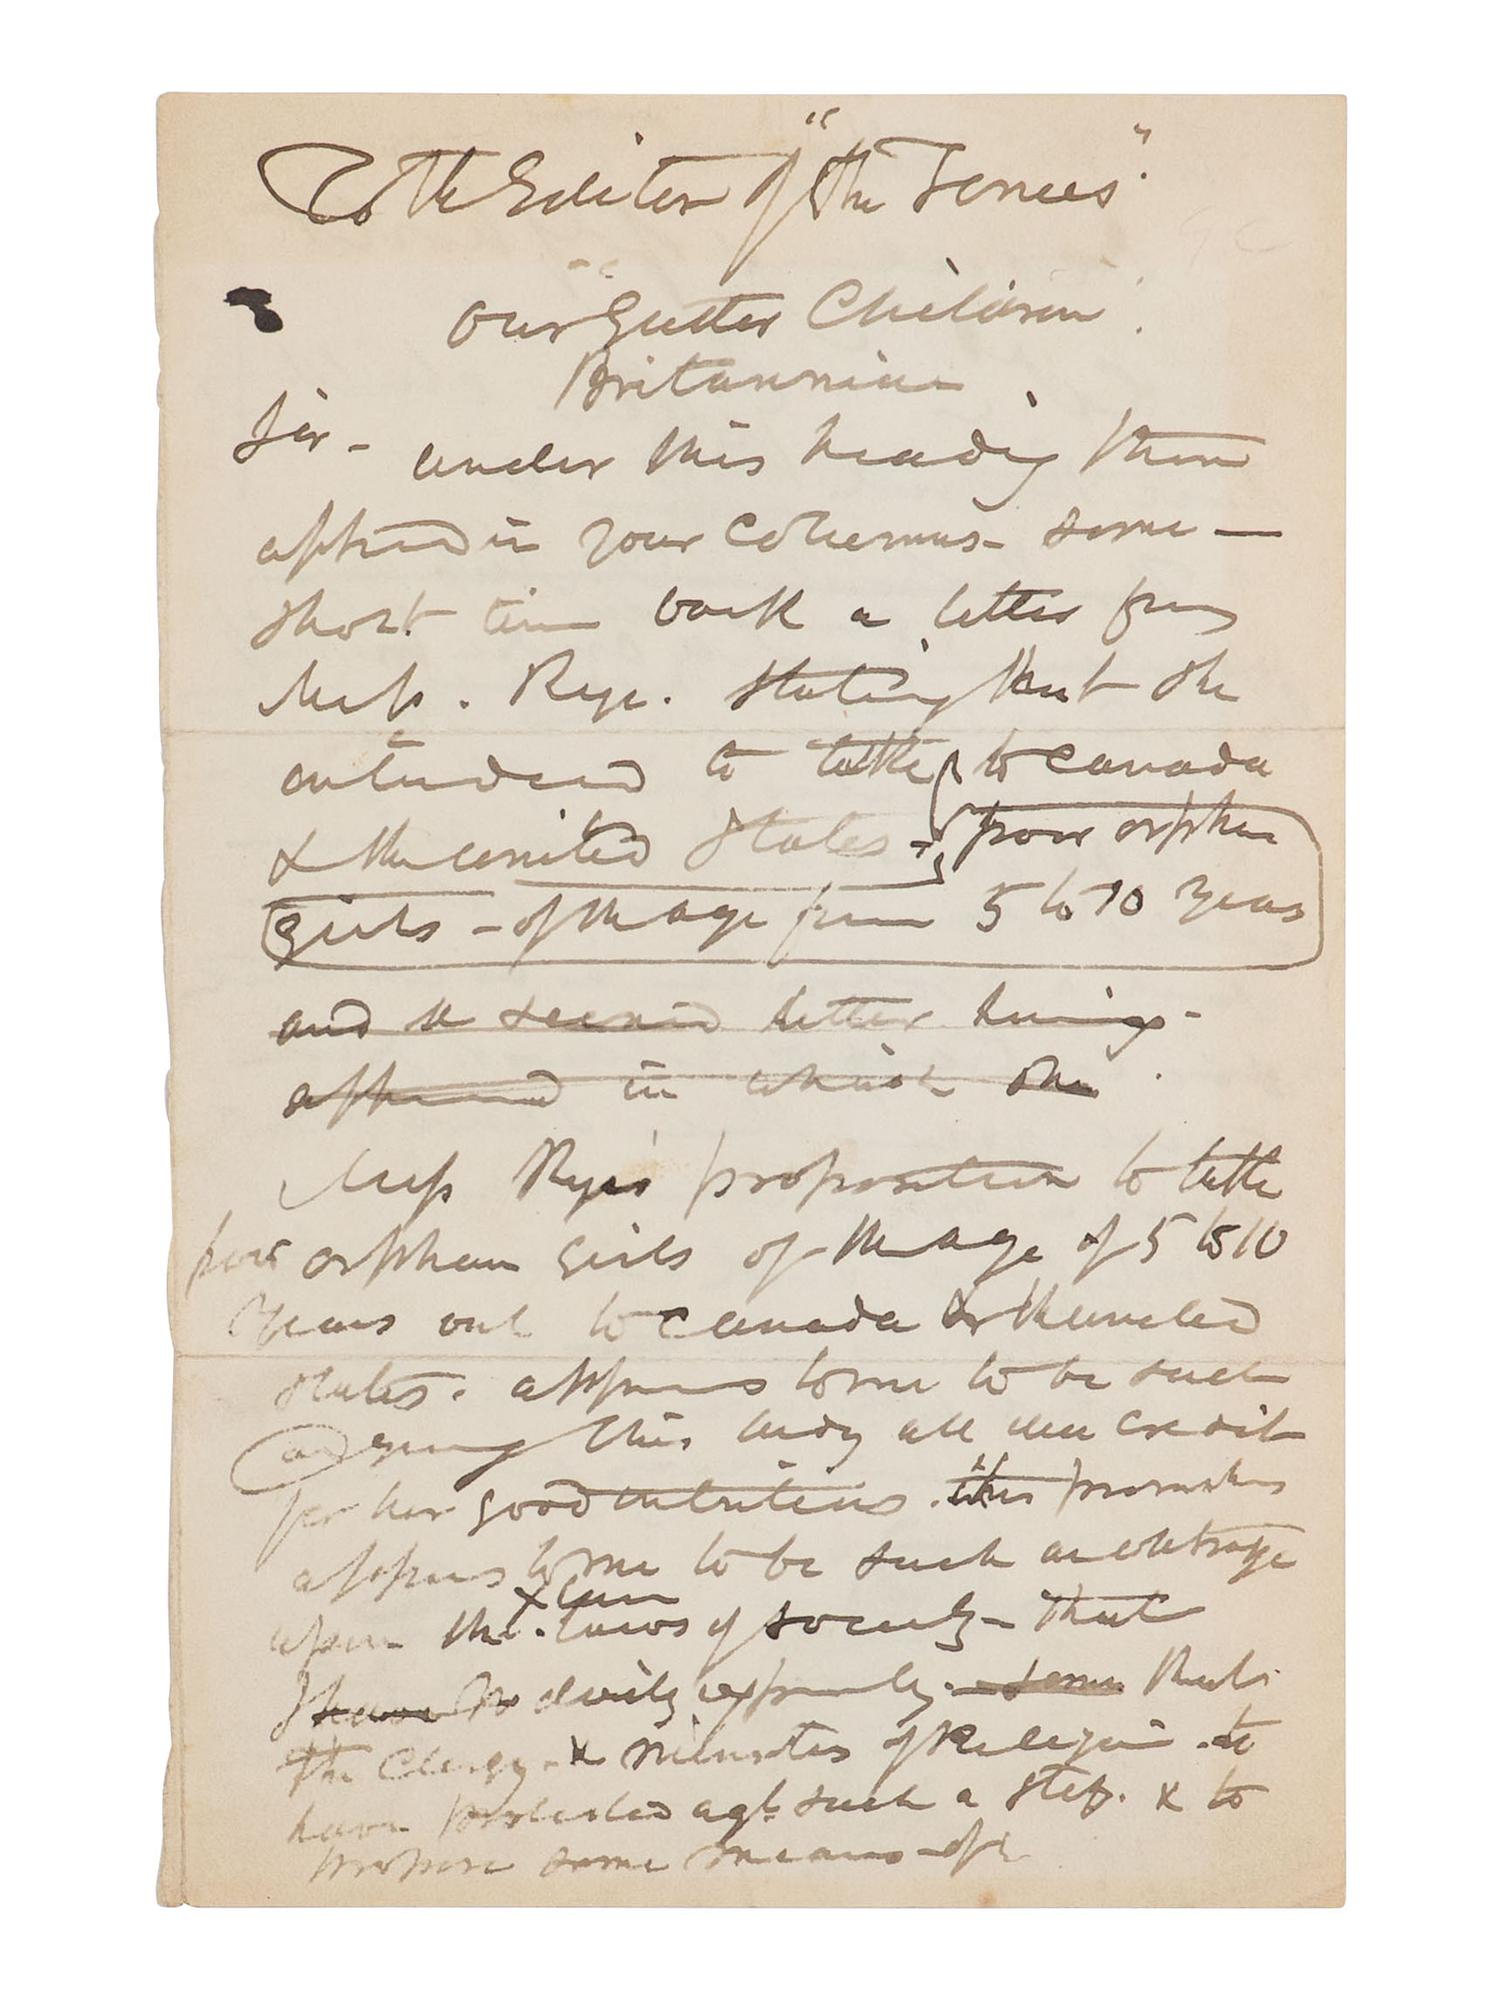 To the Editor of "the Times"
"Our Gutter Children".
Britannia
Sir - under this heading there
appeared in your Columns - some -
short time back a letter from
Miss. Rye. stating that she
intended to take to Canada
& the United States - poor orphan
girls - of the age from 5 to 10 years
and a second letter having -
appeared in which she.
Miss Rye's proposition to take
poor orphan girls of the age of 5 to 10
years out to Canada or the United
States. appears to me to be such
and giving this lady all due credit
for her good intentions. this
appears to me to be such an outrage
X
upon the. laws of society - that
I have no doubt - some that
the Clergy - & Ministers of Religion - to
have protested agt such a step. & to
propose some means - of